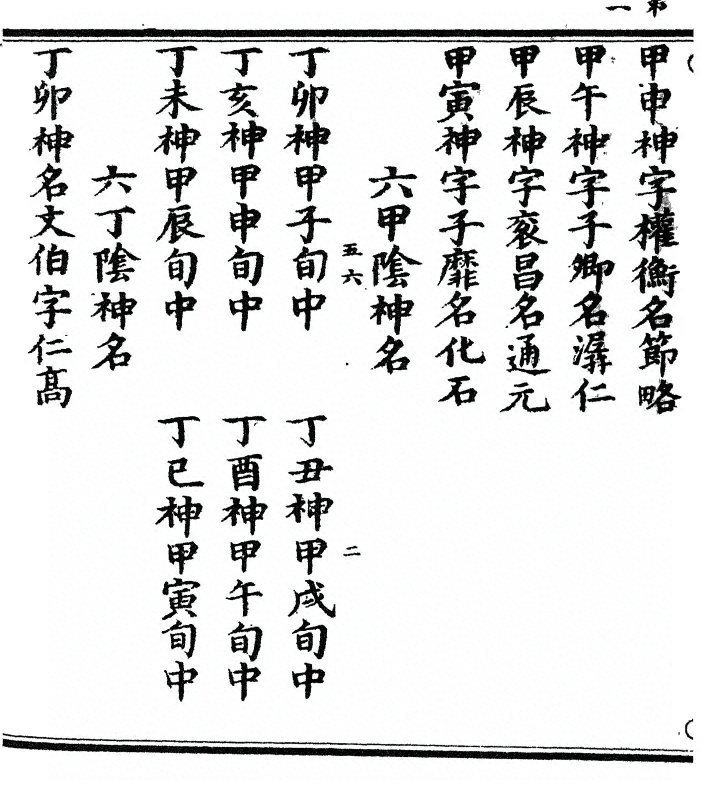 第一
甲申神字權衡名節略
甲午神字子卿名潺仁
甲辰神字衮昌名通元
甲寅神字子靡名化石
六甲陰神名
五六
二
丁卯神甲子旬中 丁丑神甲戌旬中
丁亥神甲申旬中 丁酉神甲午旬中
丁未神甲辰旬中 丁巳神甲寅旬中
六丁陰神名
丁卯神名文伯字仁高